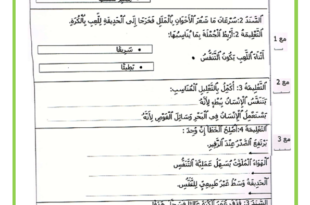 السَّنَدُ 2: سُرْعَانَ مَا شَعَرَ الْأَخَوَانِ بِالْمَلَلِ فَخَرَجَا إِلَى الْحَدِيقَةِ لِلَّعِبِ بِالْكُرَةِ.
التَّعْلِيمَةُ 2: أَرْبِطُ الْجُمْلَةَ بِمَا يُنَاسِبُهَا:
• سَرِيعًا
أَثْنَاءَ اللَّعِبِ يَكُونُ التَّنَفُّسُ •
• بَطِيئًا
مع 1
التَّعْلِيمَةُ 3: أُكْمِلُ بِالتَّعْلِيلِ الْمُنَاسِبِ:
مع 2
يَتَنَفَّسُ الْإِنْسَانُ بِبُطْءٍ لِأَنَّهُ
يَسْتَعْمِلُ الْإِنْسَانُ فِي الْبَحْرِ وَسَائِلَ الْغَوْصِ لِأَنَّهُ
التَّعْلِيمَةُ 4: أُصْلِحُ الْخَطَأَ إِنْ وُجِدَ:
مع 3
يَرْتَفِعُ الصَّدْرُ عِنْدَ الزَّفِيرِ.
الْهَوَاءُ الْمُلَوَّثُ يُسَهِّلُ عَمَلِيَّةَ التَّنَفُّسِ
الْحَدِيقَةُ وَسَطٌ غَيْرُ طَبِيعِيٍّ لِلتَّنَفُّسِ.
السَّنَدُ 3: